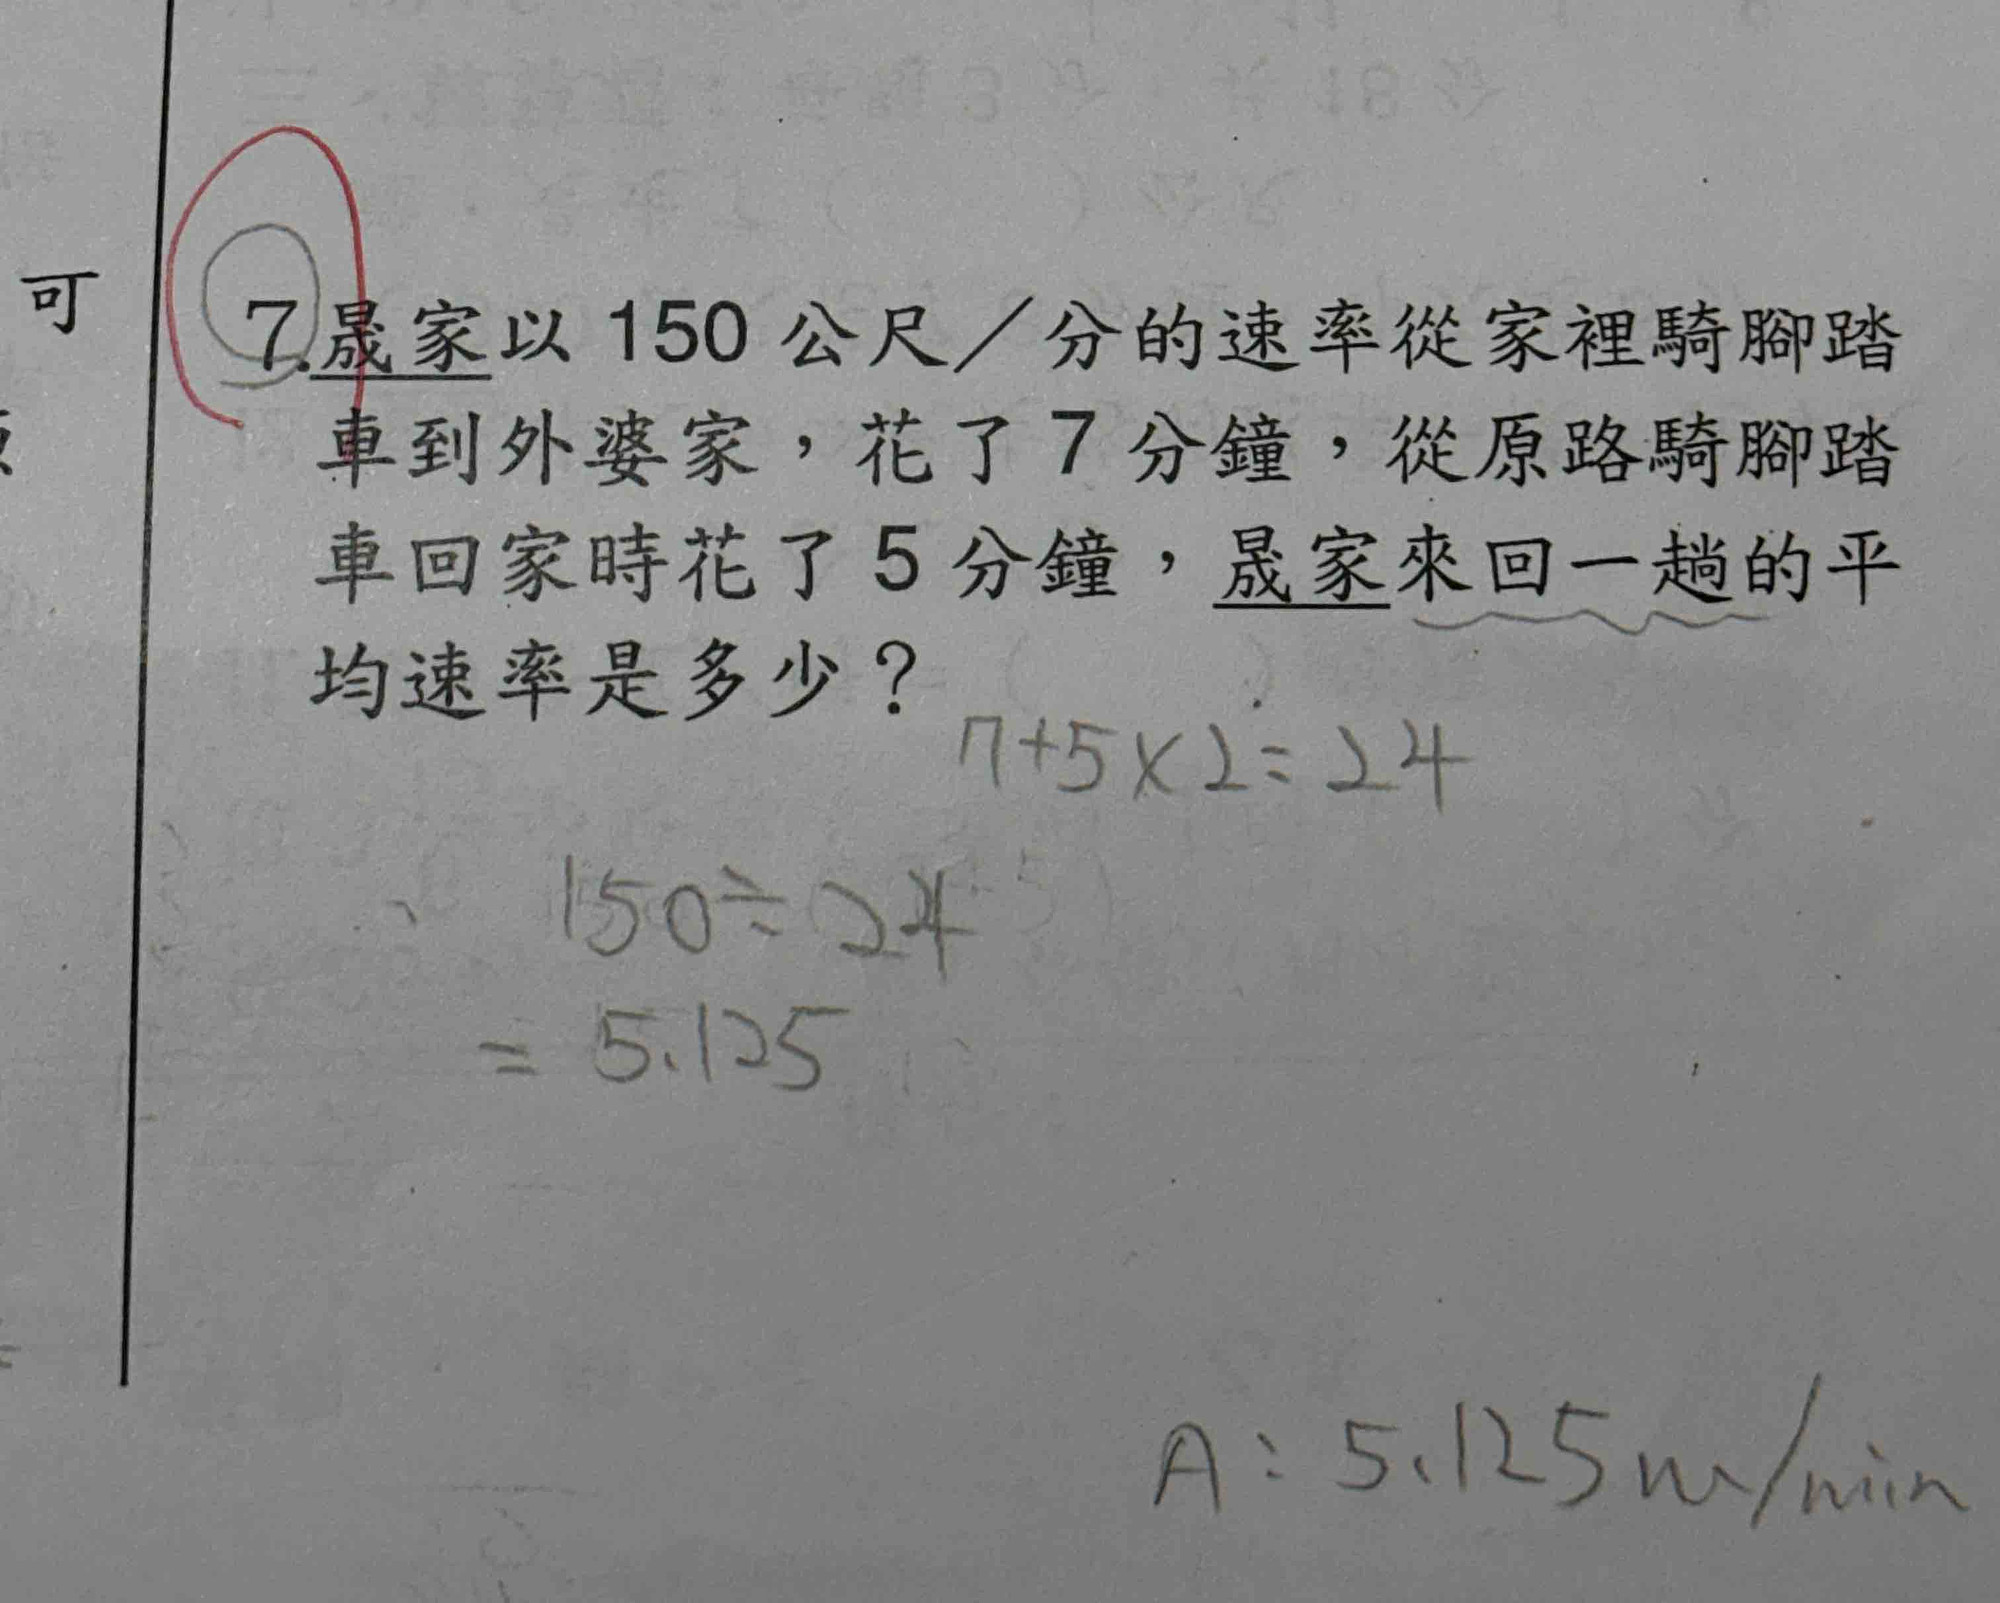 可
7.晟家以 150 公尺／分的速率從家裡騎腳踏
車到外婆家，花了 7 分鐘，從原路騎腳踏
車回家時花了 5 分鐘，晟家來回一趟的平
均速率是多少？
7+5×2=24
150÷24
= 5.125
A：5.125m/min